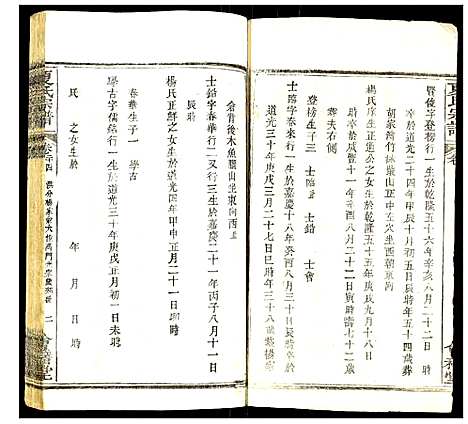 賢俊字登榜行一生於乾隆五十六年辛亥八月二十二日
時於道光二十四年甲辰十月初五日辰時年五十四歲
胡家灣竹林葉山正左穴坐西朝東
楊氏序生正道公之女生於乾隆五十五年庚戌九月十七日
時於咸豐十一年辛酉八月二十二日寅時壽七十二歲
葬夫右側
登榜生子三 士臨 士錯 士會
士臨字春來行一生於嘉慶十八年癸酉八月三十日辰時
道光三十年庚戌三月二十七日巳時年三十八歲葬樓
倉背後木魚腦山坐東向西
士錯字春華行二生於嘉慶二十一年丙子八月十一日
辰時
楊氏正鮮之女生於道光四年甲申正月二十一日 時
春華生子一 學古
學古字儒銘行一生於道光三十年庚戌正月初一日未時
氏 之女生於 年 月 日 時
夏氏宗譜